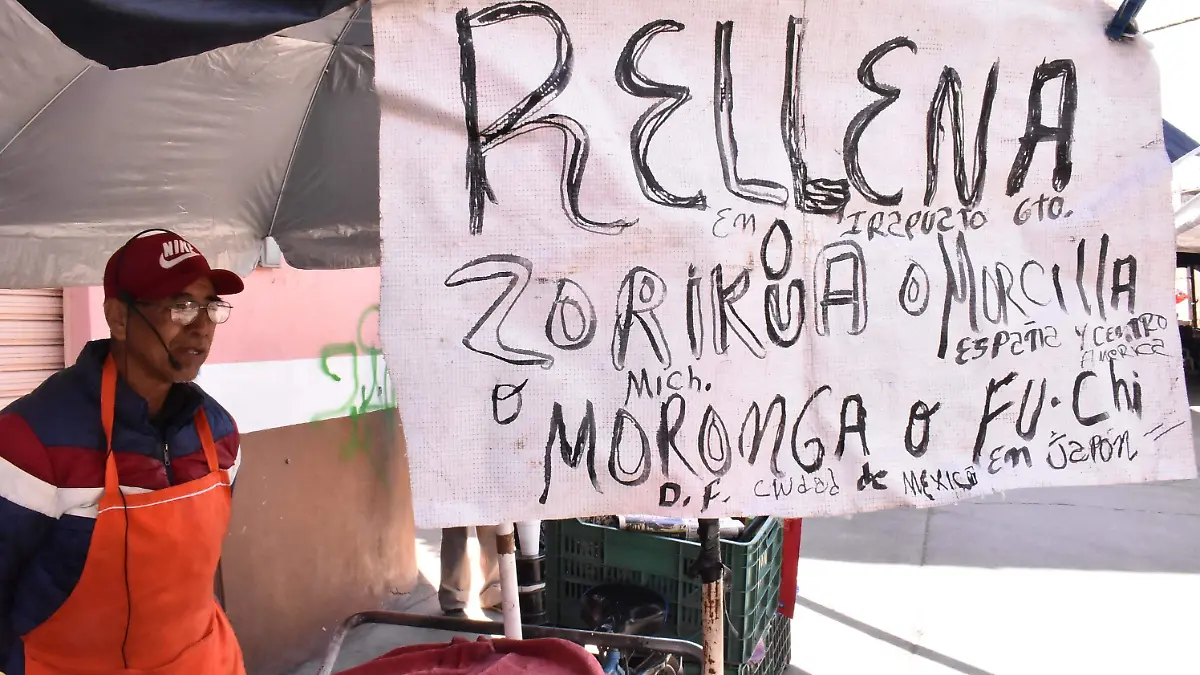 NIKE
RELLENA
EN IRAPUATO GTO.
ZORIKUA O MORCILLA
MICH. ESPAÑA Y CENTRO
AMERICA
O MORONGA O FU·Chi
D.F. CIUDAD de MEXICO EN JAPÓN